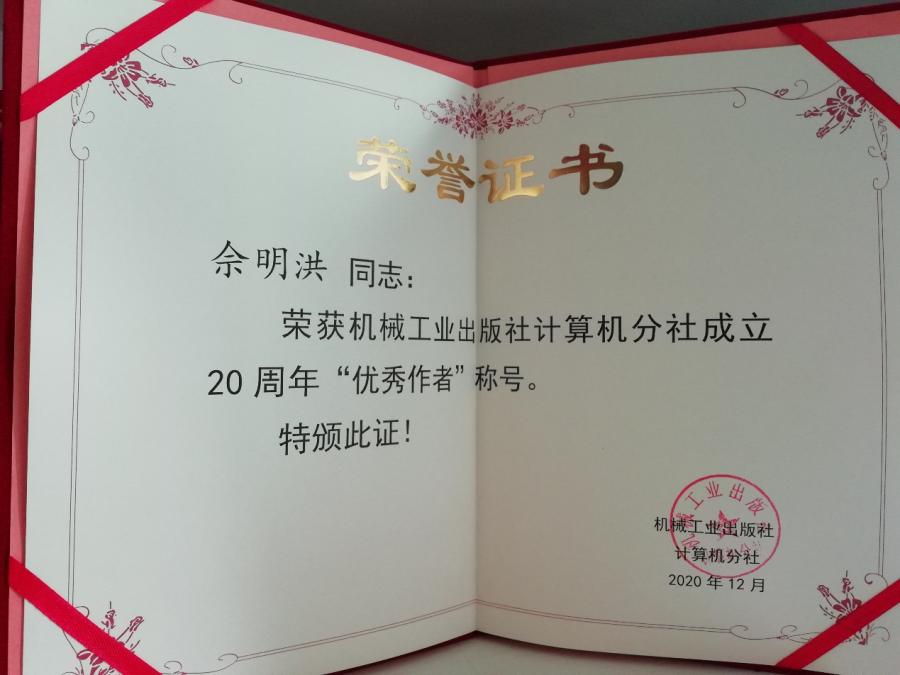 荣誉证书
佘明洪 同志：
荣获机械工业出版社计算机分社成立
20周年“优秀作者”称号。
特颁此证！
机械工业出版社
机械工业出版社
计算机分社
2020年12月